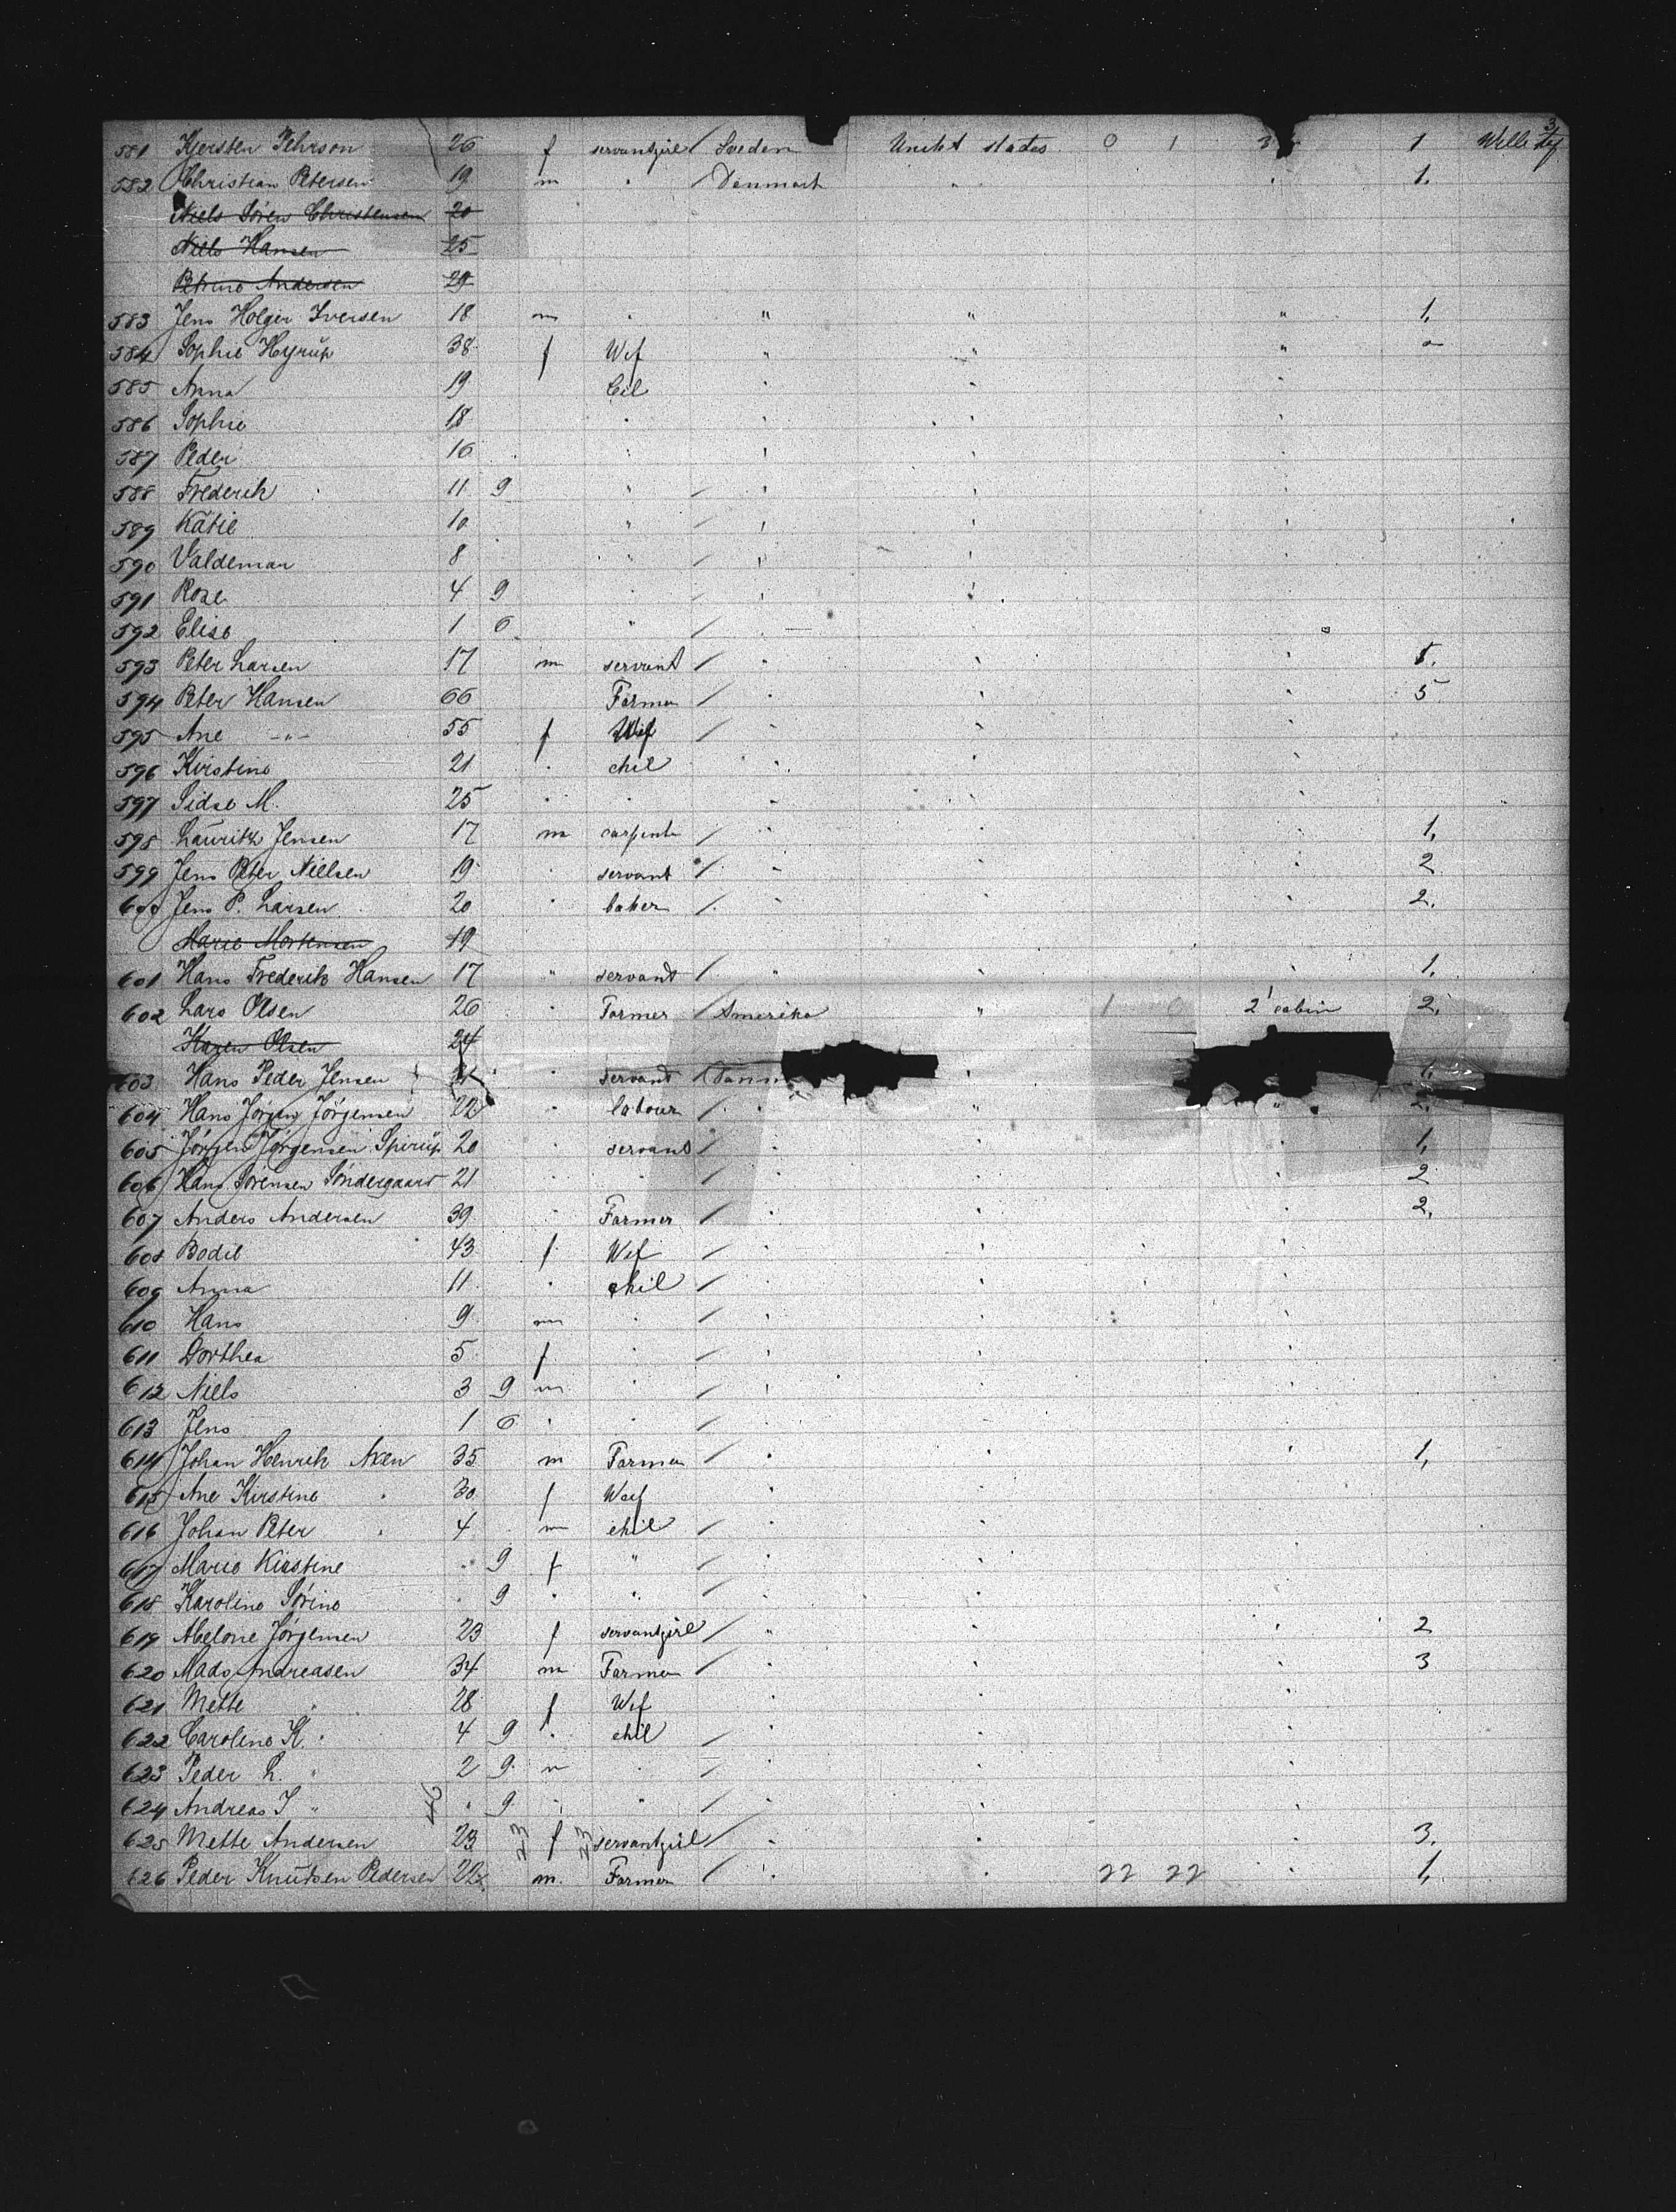 581 Kjersten Pehrson 26 f servantgirl Sveden Unitet states 0 1 1
582 Christian Petersen 19 m " Danmark " 1.
Niels Sören Christensen 20
Niels Hansen 25
Petrine Andersen 29
583 Jens Holger Iversen 18 m " " " " 1.
584 Sophie Hyrup 38 f Wif " " "
585 Anna 19 " "
586 Sophie 18 " " "
587 Peder 16 " " "
588 Frederik 11 9 " " "
589 Katie 10 " " "
590 Valdemar 8 " " "
591 Rose 4 9 " " "
592 Elise 1 6 "
593 Peter Larsen 17 m servant " "
594 Peter Hansen 66 Farmer " " 5
595 Ane -"- 55 f Wif " "
596 Kirstine 21 " chil " "
597 Sidse M. 25 " " " "
598 Lauritz Jensen 17 m carpente " " 1,
599 Jens Peter Nielsen 19 " servant " " 2
600 Jens P. Larsen 20 " baker " " 2.
Marie Mortensen 19
601 Hans Frederik Hansen 17 " servant " " 1.
602 Lars Olsen 26 " Farmer Amerika " 1 0 2' cabin 2.
Karen Olsen 24
603 Hans Peder Jensen " servant " 1,
604 Hans Jörgen Jörgensen 22 " labour " " " 2.
605 Jörgen Jörgensen Spirup 20 " servant " " 1,
606 Hans Sörensen Söndergaard 21 " " " " 2
607 Anders Andersen 39 " Farmer " " 2,
608 Bodil 43 f Wif " " "
609 Anna 11 " chil " " "
610 Hans 9 m " " " "
611 Dorthea 5 f " " " "
612 Niels 3 9 m " " " "
613 Jens 1 6 " " " "
614 Johan Henrik Axen 35 m Farmer " " " 1,
615 Ane Kirstine " 30 f Wif " " "
616 Johan Peter " 4 m chil " " "
617 Marie Kirstine " 9 f " " " "
618 Karoline Sörine " 9 " " " " "
619 Abelone Jörgensen 23 f servantgirl " " " 2
620 Mads Andreasen 34 m Farmer " " " 3
621 Mette " 28 f Wif " " "
622 Caroline K. " 4 9 " chil " " "
623 Peder L. " 2 9 m " " " "
624 Andreas J " " 9 " " " " "
625 Mette Andersen 23 f servantgirl " " " 3.
626 Peder Knudsen Pedersen 22 m. Farmer " " 22 22 " 1,